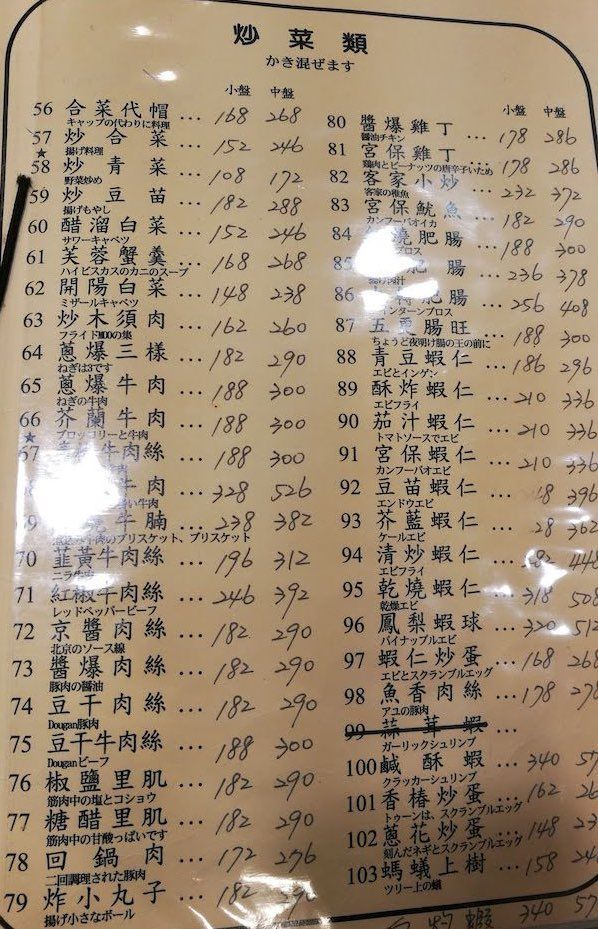 炒菜類
かき混ぜます
小盤 中盤
56 合菜代帽 ... 168 268
キャップの代わりに料理
57 炒合菜 ... 152 246
揚げ料理
★
58 炒青菜 ... 108 172
野菜炒め
59 炒豆苗 ... 182 288
揚げもやし
60 醋溜白菜 ... 152 246
サワーキャベツ
61 芙蓉蟹羹 ... 168 268
ハイビスカスのカニのスープ
62 開陽白菜 ... 148 238
ミザールキャベツ
63 炒木須肉 ... 162 260
フライドMOOの集
64 蔥爆三樣 ... 182 290
ねぎは3です
65 蔥爆牛肉 ... 188 300
ねぎの牛肉
66 芥蘭牛肉 ... 188 300
ブロッコリーと牛肉
★
67 牛肉絲 ... 188 300
牛肉 ... 328 526
牛腩 ... 238 382
のブリスケット、ブリスケット
70 韮黃牛肉絲 ... 196 312
71 紅椒牛肉絲 ... 246 392
レッドペッパービーフ
72 京醬肉絲 ... 182 290
北京のソース線
73 醬爆肉絲 ... 182 290
豚肉の醤油
74 豆干肉絲 ... 182 290
Dougan豚肉
75 豆干牛肉絲 ... 188 300
Douganビーフ
76 椒鹽里肌 ... 182 290
筋肉中の塩とコショウ
77 糖醋里肌 ... 182 290
筋肉中の甘酸っぱいです
78 回鍋肉 ... 172 276
二回調理された豚肉
79 炸小丸子 ... 182 290
揚げ小さなボール
小盤 中盤
80 醬爆雞丁 ... 178 286
醤油チキン
81 宮保雞丁 ... 178 286
鶏肉とピーナッツの唐辛子いため
82 客家小炒 ... 232 372
客家の稚魚
83 宮保魷魚 ... 182 290
カンフーバオイカ
84 燒肥腸 ... 188 300
85 肥腸 ... 236 378
86 肥腸 ... 256 408
87 五更腸旺 ... 188 300
ちょうど夜明け腸の王の前に
88 青豆蝦仁 ... 186 296
エビとインゲン
89 酥炸蝦仁 ... 210 336
エビフライ
90 茄汁蝦仁 ... 210 336
トマトソースでエビ
91 宮保蝦仁 ... 210 336
カンフーバオエビ
92 豆苗蝦仁 ... 396
エンドウエビ
93 芥藍蝦仁 ... 362
ケールエビ
94 清炒蝦仁 ... 448
エビフライ
95 乾燒蝦仁 ... 318 508
乾燥エビ
96 鳳梨蝦球 ... 320 512
パイナップルエビ
97 蝦仁炒蛋 ... 168 268
エビとスクランブルエッグ
98 魚香肉絲 ... 178 278
アユの豚肉
99 蒜茸蝦 ...
ガーリックシュリンプ
100 鹹酥蝦 ... 340 57
クラッカーシュリンプ
101 香椿炒蛋 ... 162 26
トゥーンは、スクランブルエッグ
102 蔥花炒蛋 ... 148 23
刻んだネギとスクランブルエッグ
103 螞蟻上樹 ... 158 24
ツリー上の蟻
蝦 340 57